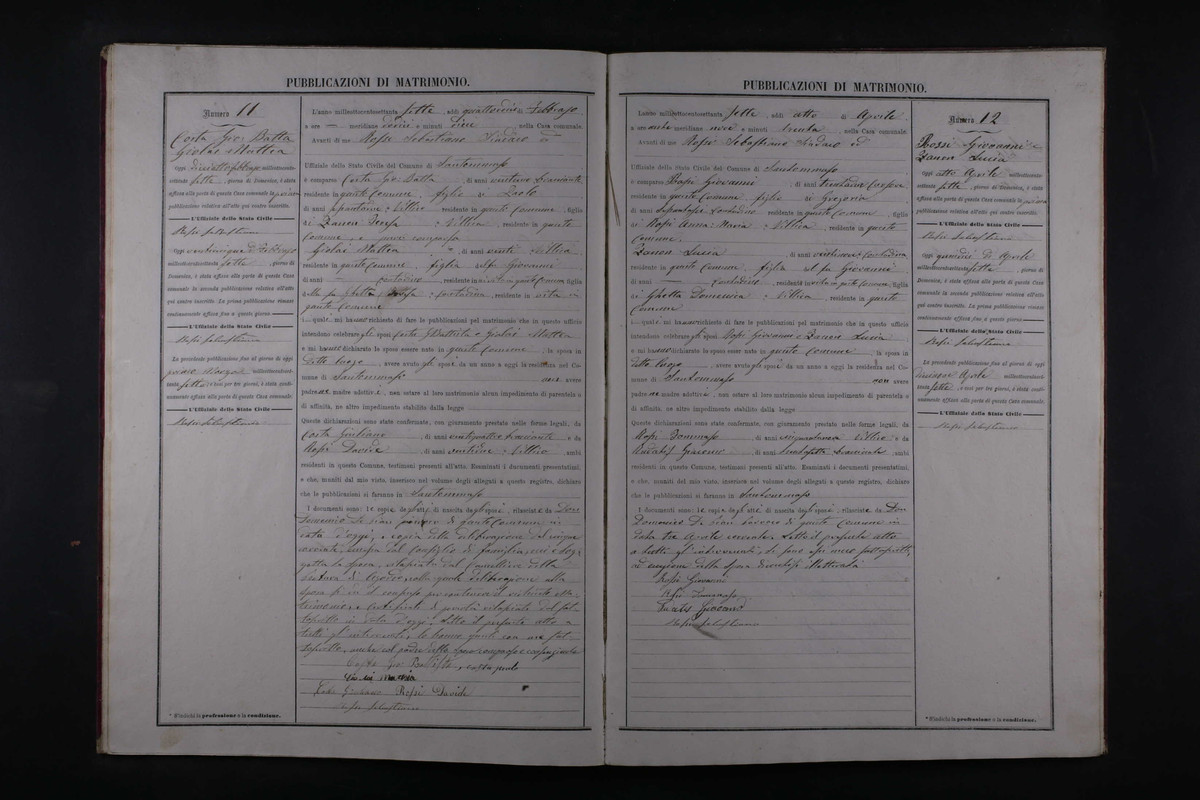 PUBBLICAZIONI DI MATRIMONIO.
Numero 11
Costa Gio: Batta
Giolai Mattia
Oggi diciotto febbrajo millottocento
settanta sette, giorno di Domenica, è stata
affissa alla porta di questa Casa comunale la prima
pubblicazione relativa all'atto qui contro inscritto.
L'Uffiziale dello Stato Civile
Rossi Sebastiano
Oggi venticinque di Febbrajo
millottocentosettanta sette, giorno di
Domenica, è stata affissa alla porta di questa Casa
comunale la seconda pubblicazione relativa all'atto
qui contro inscritto. La prima pubblicazione rimase
continuamente affissa fino a questo giorno
L'Uffiziale dello Stato Civile
Rossi Sebastiano
La presente pubblicazione fino al giorno di oggi
primo Marzo millottocentoset-
tanta sette e così per tre giorni, è stata conti-
nuamente affissa alla porta di questa Casa comunale.
L'Uffiziale dello Stato Civile
Rossi Sebastiano
* S'indichi la professione o la condizione.
L'anno millottocentosettanta sette, addì quattordici di Febbrajo
a ore — meridiane dieci e minuti dieci, nella Casa comunale.
Avanti di me Rossi Sebastiano Sindaco ed
Uffiziale dello Stato Civile del Comune di Santommaso
è comparso Costa Gio: Batta, di anni
residente in questo Comune figlio di Paolo
di anni, residente in questo Comune, figlio
di Zanon Teresa : Villica, residente in questo
Comune, e pure comparsa
Giolai Mattia, di anni venti Villica
residente in questo Comune, figlia del fu Giovanni
di anni — contadino, residente in vita in questo Comune figlia
della fu contadina, residente in vita in
questo Comune
i quali mi hanno richiesto di fare le pubblicazioni pel matrimonio che in questo uffizio
intendono celebrare gli sposi Costa G. Battista e Giolai Mattia
e mi hanno dichiarato lo sposo essere nato in questo Comune, la sposa in
detto luogo, avere avuto gli sposi da un anno a oggi la residenza nel Co-
mune di Santommaso non avere
padre nè madre adottivi, non ostare al loro matrimonio alcun impedimento di parentela o
di affinità, nè altro impedimento stabilito dalla legge
Queste dichiarazioni sono state confermate, con giuramento prestato nelle forme legali, da
Costa Giuliano, di anni ventiquattro e da
Rossi Davide, di anni ventitre : Villico, ambi
residenti in questo Comune, testimoni presenti all'atto. Esaminati i documenti presentatimi,
e che, muniti del mio visto, inserisco nel volume degli allegati a questo registro, dichiaro
che le pubblicazioni si faranno in Santommaso
I documenti sono: le copie degli atti di nascita degli sposi, rilasciate da Don
Domenico De Pian parroco di questo Comune in
data d'oggi, e copia della deliberazione del cinque
corrente, emessa dal Consiglio di famiglia, cui è sog-
getta la sposa, rilasciata dal Cancelliere della
Pretura di Agordo, colla quale deliberazione alla
sposa si dà il consenso per contrarre il presente Ma-
trimonio, e certificato di povertà rilasciato dal sot-
toscritto in data d'oggi. Letto il presente atto a
tutti gl'intervenuti, lo hanno questi con me sot-
toscritto, anche col padre dello sposo comparso e consenziente
Costa Gio: Battista, Costa Paolo
Giolai Mattia
Costa Giuliano Rossi Davide
Rossi Sebastiano
PUBBLICAZIONI DI MATRIMONIO.
L'anno millottocentosettanta sette, addì otto di Aprile
a ore anti meridiane nove e minuti trenta, nella Casa comunale.
Avanti di me Rossi Sebastiano Sindaco ed
Uffiziale dello Stato Civile del Comune di Santommaso
è comparso Rossi Giovanni, di anni
residente in questo Comune figlio di Gregorio
di anni contadino, residente in questo Comune, figlio
di Rossi Anna Maria : Villica, residente in questo
Comune,
Zanon Lucia, di anni contadina
residente in questo Comune, figlia del fu Giovanni
di anni — contadino, residente in vita in questo Comune, figlia
di Ghetta Domenica : Villica, residente in questo
Comune
i quali mi hanno richiesto di fare le pubblicazioni pel matrimonio che in questo uffizio
intendono celebrare gli sposi Rossi Giovanni e Zanon Lucia
e mi hanno dichiarato lo sposo esser nato in questo Comune, la sposa in
detto luogo, avere avuto gli sposi da un anno a oggi la residenza nel Co-
mune di Santommaso non avere
padre nè madre adottivi, non ostare al loro matrimonio alcun impedimento di parentela o
di affinità, nè altro impedimento stabilito dalla legge
Queste dichiarazioni sono state confermate, con giuramento prestato nelle forme legali, da
Rossi Tommaso, di anni Villico, e da
Giacomo, di anni trentasette, ambi
residenti in questo Comune, testimoni presenti all'atto. Esaminati i documenti presentatimi,
e che, muniti del mio visto, inserisco nel volume degli allegati a questo registro, dichiaro
che le pubblicazioni si faranno in Santommaso
I documenti sono: le copie degli atti di nascita degli sposi, rilasciate da Don
Domenico De Pian parroco di questo Comune in
data tre Aprile corrente. Letto il presente atto
a tutti gl'intervenuti, lo hanno essi meco sottoscritto,
ad eccezione della sposa dicendosi illetterata
Rossi Giovanni
Rossi Tommaso
Giacomo
Rossi Sebastiano
Numero 12
Rossi Giovanni e
Zanon Lucia
Oggi otto Aprile millottocento
settanta sette, giorno di Domenica, è stata
affissa alla porta di questa Casa comunale la prima
pubblicazione relativa all'atto qui contro inscritto.
L'Uffiziale dello Stato Civile
Rossi Sebastiano
Oggi quindici di Aprile
millottocentosettanta sette, giorno di
Domenica, è stata affissa alla porta di questa Casa
comunale la seconda pubblicazione relativa all'atto
qui contro inscritto. La prima pubblicazione rimase
continuamente affissa fino a questo giorno
L'Uffiziale dello Stato Civile
Rossi Sebastiano
La presente pubblicazione fino al giorno di oggi
Aprile millottocentoset-
tanta sette, e così per tre giorni, è stata conti-
nuamente affissa alla porta di questa Casa comunale.
L'Uffiziale dello Stato Civile
Rossi Sebastiano
* S'indichi la professione o la condizione.